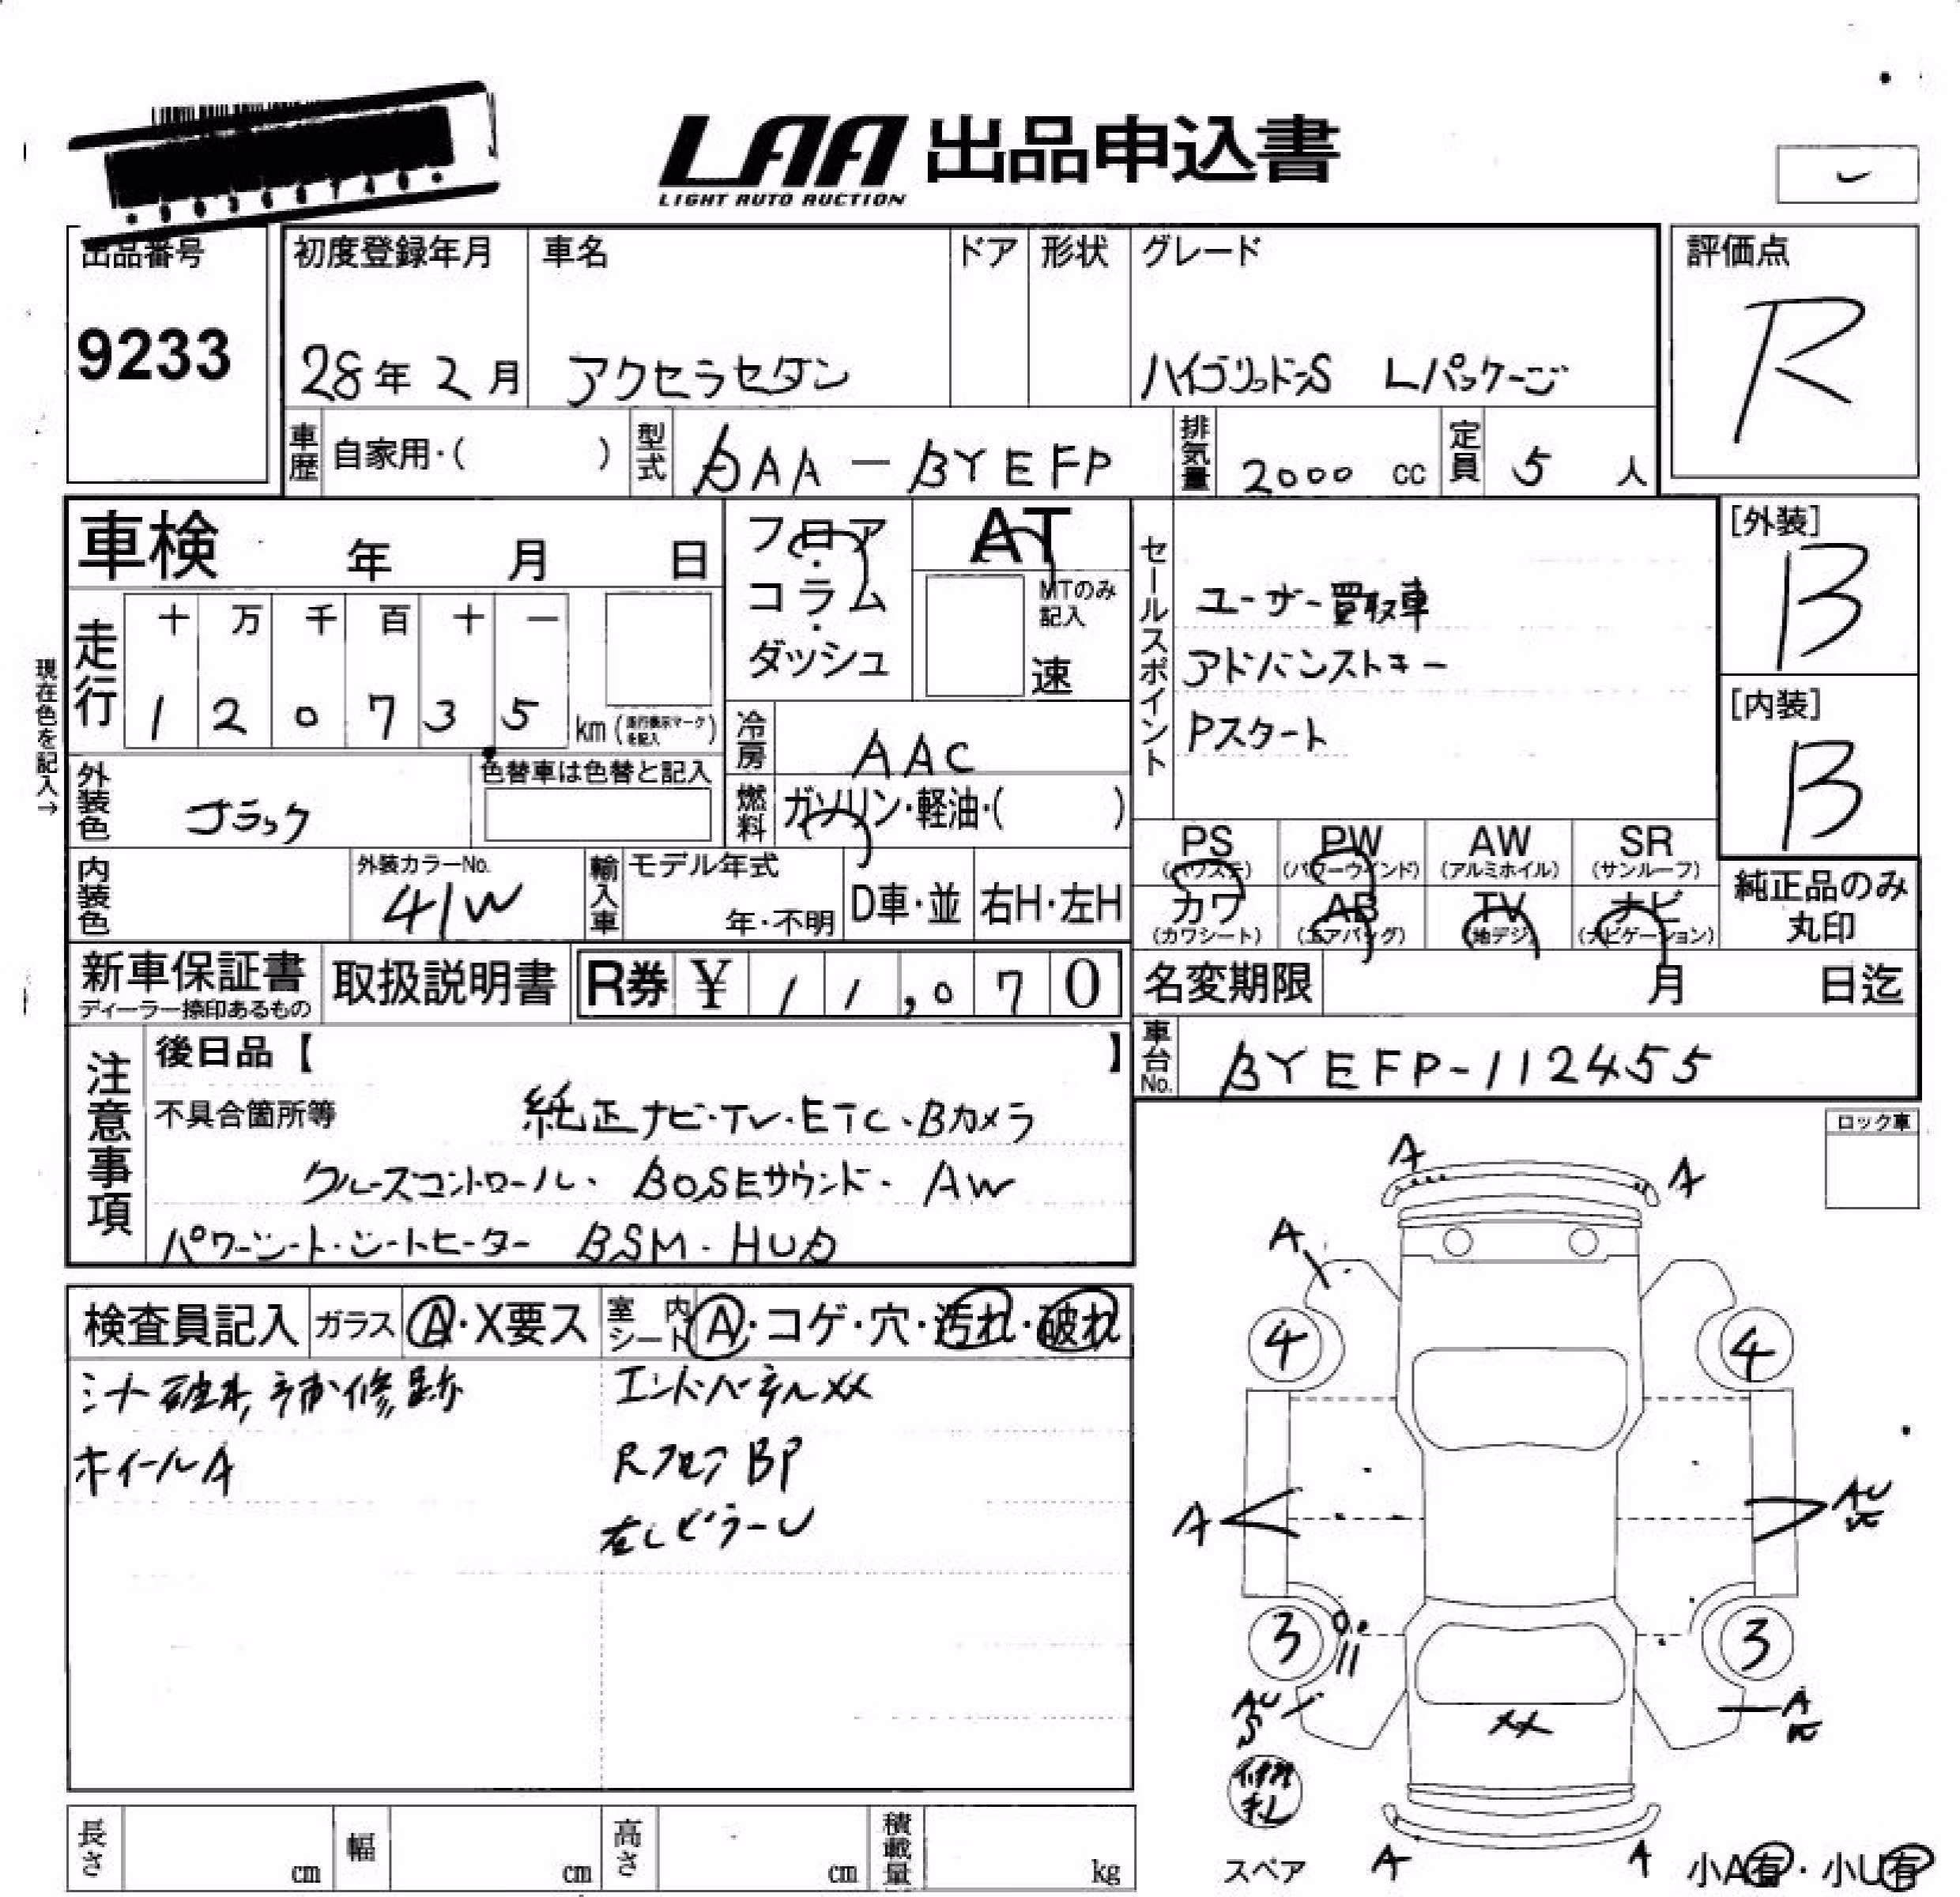 LAA 出品申込書
LIGHT AUTO AUCTION
出品番号
9233
初度登録年月 車名 ドア 形状 グレード
28年 2月 アクセラセダン ハイブリッド-S Lパッケージ
評価点
R
車歴 自家用・( ) 型式 DAA-BYEFP 排気量 2000 cc 定員 5 人
車検 年 月 日
フロア・コラム・ダッシュ
AT
MTのみ記入
速
セールスポイント
ユーザー買取車
アドバンストキー
Pスタート
[外装]
B
[内装]
B
現在色を記入→
走行 十 万 千 百 十 一
1 2 0 7 3 5 km (走行表示マークを記入)
冷房 AAC
外装色 ブラック 色替車は色替と記入
燃料 ガソリン・軽油・( )
PS (パワステ) PW (パワーウインド) AW (アルミホイル) SR (サンルーフ)
カワ (カワシート) AB (エアバッグ) TV (地デジ) ナビ (ナビゲーション)
純正品のみ丸印
内装色 外装カラーNo. 41W 輸入車 モデル年式 年・不明 D車・並 右H・左H
新車保証書 ディーラー捺印あるもの 取扱説明書 R券 ¥ 11,070
名変期限 月 日迄
車台No. BYEFP-112455
注意事項
後日品【 】
不具合箇所等 純正ナビ・TV・ETC・Bカメラ
クルーズコントロール・BOSEサウンド・AW
パワーシート・シートヒーター BSM・HUD
ロック車
検査員記入 ガラス A・X要ス 室内シート A・コゲ・穴・汚れ・破れ
ミナー破れ,補修跡 エンドパネルXX
ホイールA RフロアBP
左Cピラー U
A A
A
4 4
A AU
3 3
AU
S A
XX
修理キット
スペア A A 小A有・小U有
長さ cm 幅 cm 高さ cm 積載量 kg